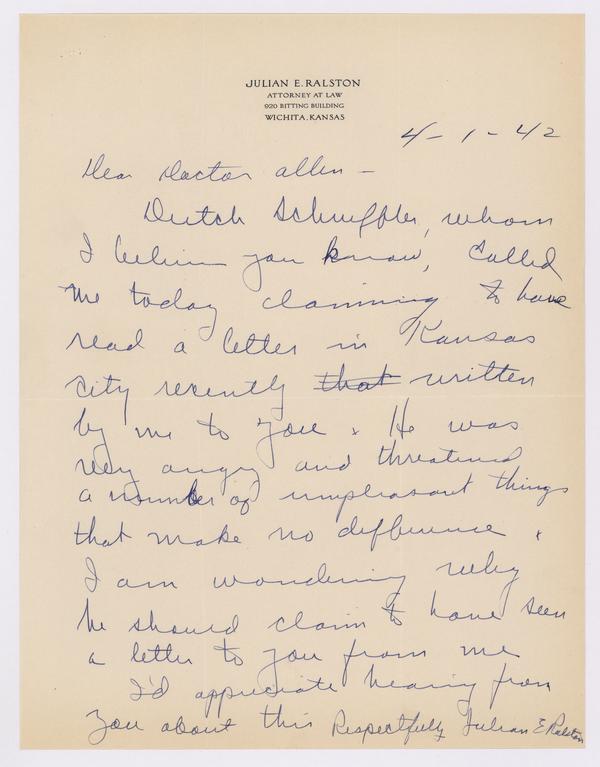 JULIAN E. RALSTON
ATTORNEY AT LAW
920 BITTING BUILDING
WICHITA, KANSAS
4-1-42
Dear Doctor Allen -
Dutch Scheuffler, whom
I believe you know, called
me today claiming to have
read a letter in Kansas
City recently that written
by me to you. He was
very angry and threatened
a number of unpleasant things
that make no difference.
I am wondering why
he should claim to have seen
a letter to you from me
I'd appreciate hearing from
you about this Respectfully Julian E Ralston